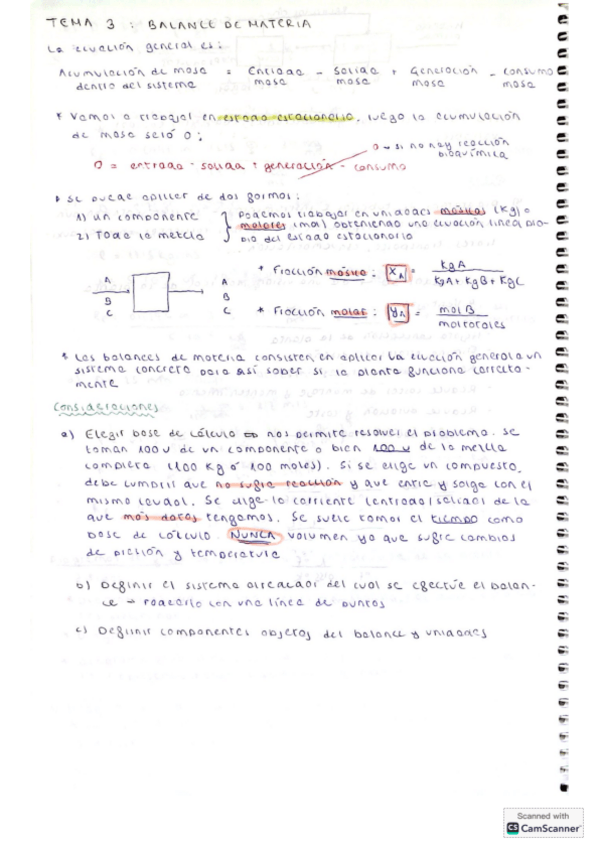 TEMA 3 : BALANCE DE MATERIA
La ecuación general es:
Acumulación de masa = Entrada - Salida + Generación - Consumo
dentro del sistema masa masa masa masa
* Vamos a trabajar en estado estacionario, luego la acumulación
de masa será 0:
0 → si no hay reacción
bioquímica
0 = entrada - salida + generación - consumo
* Se puede aplicar de dos formas:
1) un componente
2) Toda la mezcla
Podemos trabajar en unidades másicas (kg) o
molares (mol) obteniendo una ecuación linea pro-
pio del estado estacionario
* Fracción másica : XA = kgA / kgA + kgB + kgC
A
B
C
A
B
C
* Fracción molar : yA = mol B / mol totales
* Los balances de materia consisten en aplicar la ecuación general a un
sistema concreto para así saber si la planta funciona correcta-
mente
Consideraciones
a) Elegir base de cálculo nos permite resolver el problema. Se
toman 100 u de un componente o bien 100 u de la mezcla
completa (100 kg ó 100 moles). Si se elige un compuesto,
debe cumplir que no sufra reacción y que entre y salga con el
mismo caudal. Se elige la corriente (entrada/salida) de la
que más datos tengamos. Se suele tomar el tiempo como
base de cálculo. NUNCA volumen ya que sufre cambios
de presión y temperatura
b) Definir el sistema alrededor del cual se efectúe el balan-
ce → rodearlo con una línea de puntos
c) Definir componentes objetos del balance y unidades
Scanned with
CS CamScanner